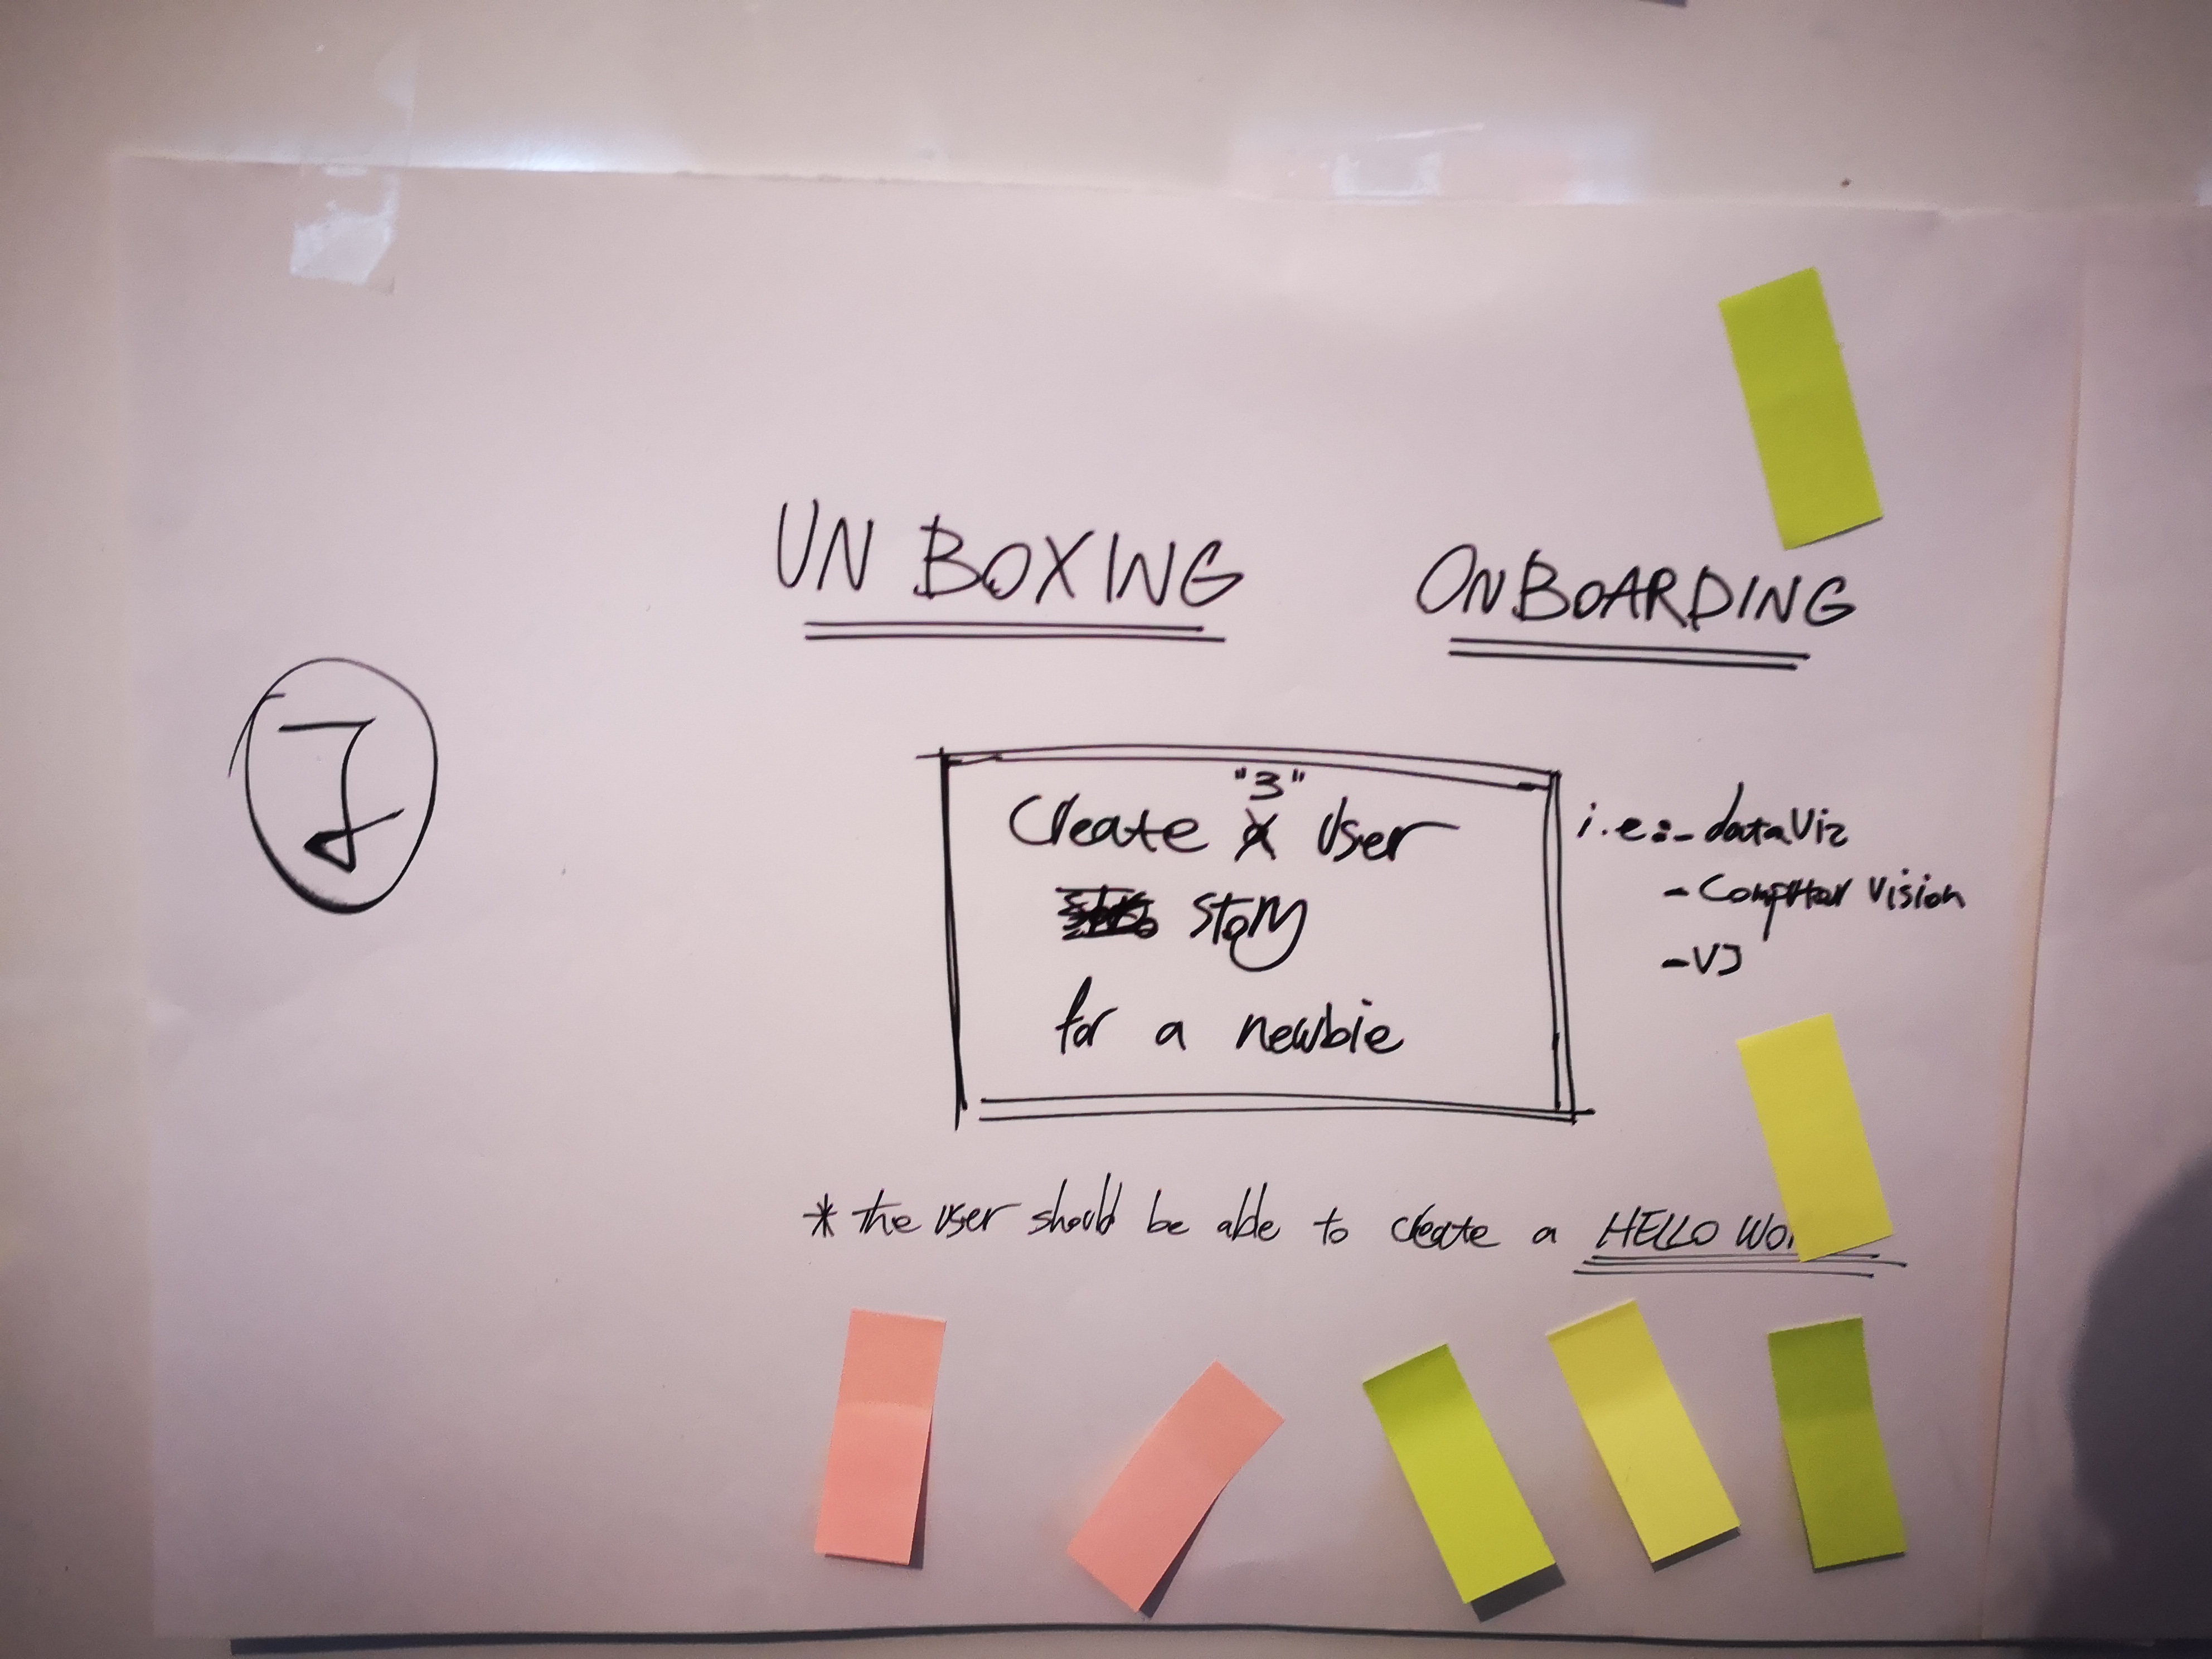 UN BOXING ONBOARDING
J
"3"
Create a User
story
for a newbie
i.e:- dataViz
- Computer Vision
- VJ
* the user should be able to create a HELLO WOR